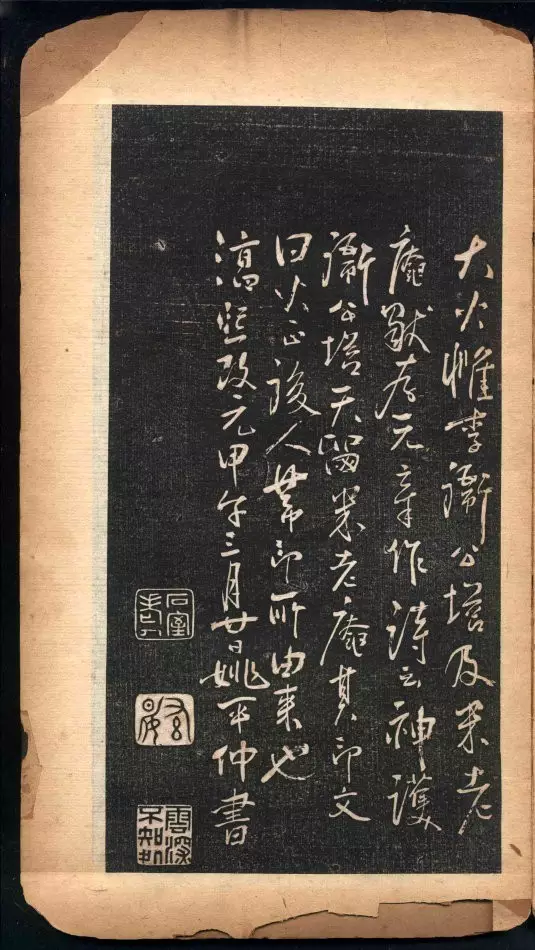 大火惟李衛公塔及米老
庵獃存元章作詩云神護
衛公塔天留米老庵其印文
曰火正後人芾印所由來也
淳熙改元甲午三月廿日姚平仲書
石室
雲深不知處